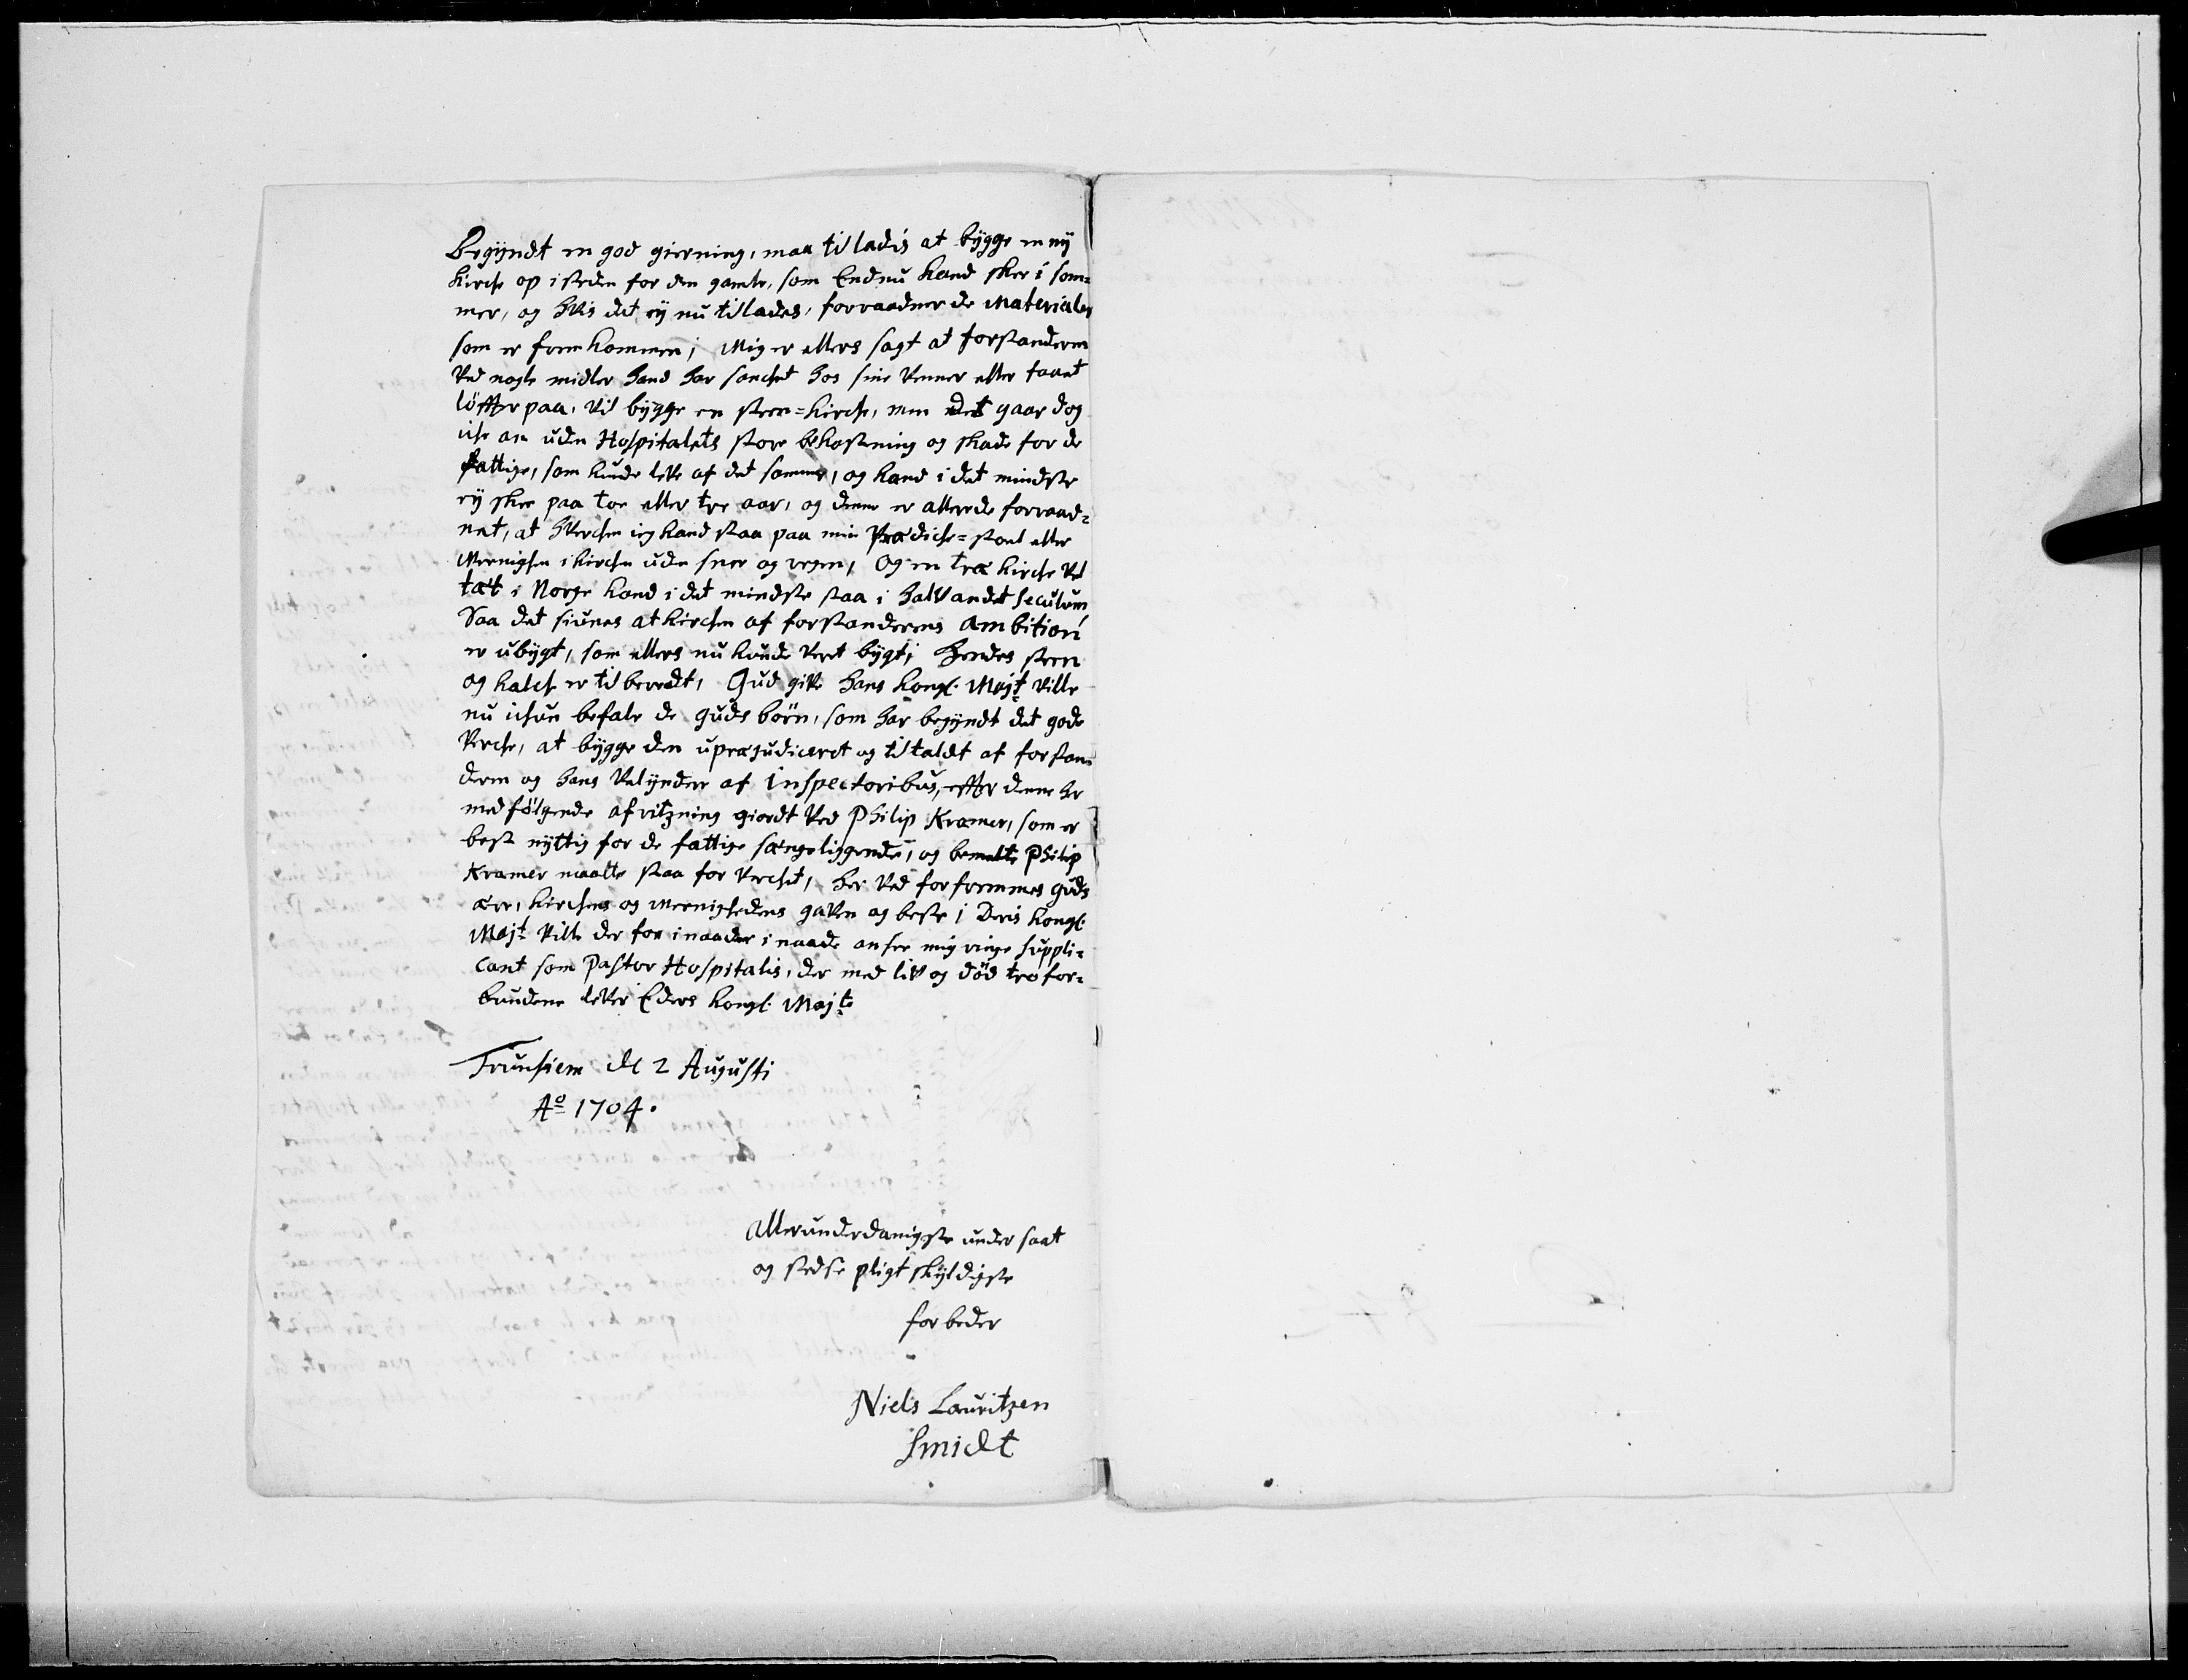 Begyndt en god gierning, maa tilladis at bygge en ny
Kirche op i steden for den gamle, som Endnu kand skee i som=
mer, og hvis det ey nu tillades, forraadner de Materialer
som er fremkommen; Mig er ellers sagt at forstanderen
ved nogle midler hand har sanchet hos sine venner eller taaet
löffter paa, vil bygge en steen=kirche, men det gaar dog
iche an uden Hospitalets store bekostning og skade for de
fattige, som kunde leve af det samme, og kand i det mindste
ey skee paa toe eller tre aar, og denne er allerede forraad=
net, at hverchen ieg kand staa paa min Prædiche=stoel eller
Meenighen i kirchen uden snee og regen, Og en træ kirche vel
tæt i Norge kand i det mindste staa i halvandet seculum
Saa det siunes at kirchen af forstanderens ambition
er ubygt, som ellers nu kunde veret bygt; hendes steen
og kalch er tilberedt, Gud give hans kongl. Majt ville
nu ichun befale de guds börn, som har begyndt det gode
verche, at bygge den upræjudiceret og tiltaldt af forstan=
deren og hans velyndere af inspectoribus, effter denne her
medfölgende afritzning giordt ved Philip Kramer, som er
best nyttig for de fattige sængeliggende, og bemelte Philip
Kramer maatte staa for verchet, her ved forfremmes guds
ære, kirchens og meenighedens gavn og beste; Deris kongl.
Majt ville der for i naader i naade ansee mig ringe suppli=
cant som Pastor Hospitalis, der med liv og död tro for=
bundene lever Eders kongl. Majts
Trunhiem dl 2 Augusti
Ao 1704.
Allerunderdanigste undersaat
og stedse pligt skyldigste
forbeder
Niels Lauritzen
Smidt